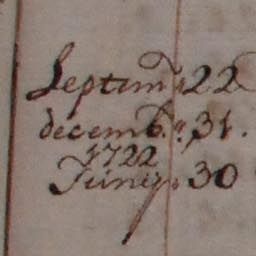 Septem: 22
decemb: 31.
1722
Junij: 30